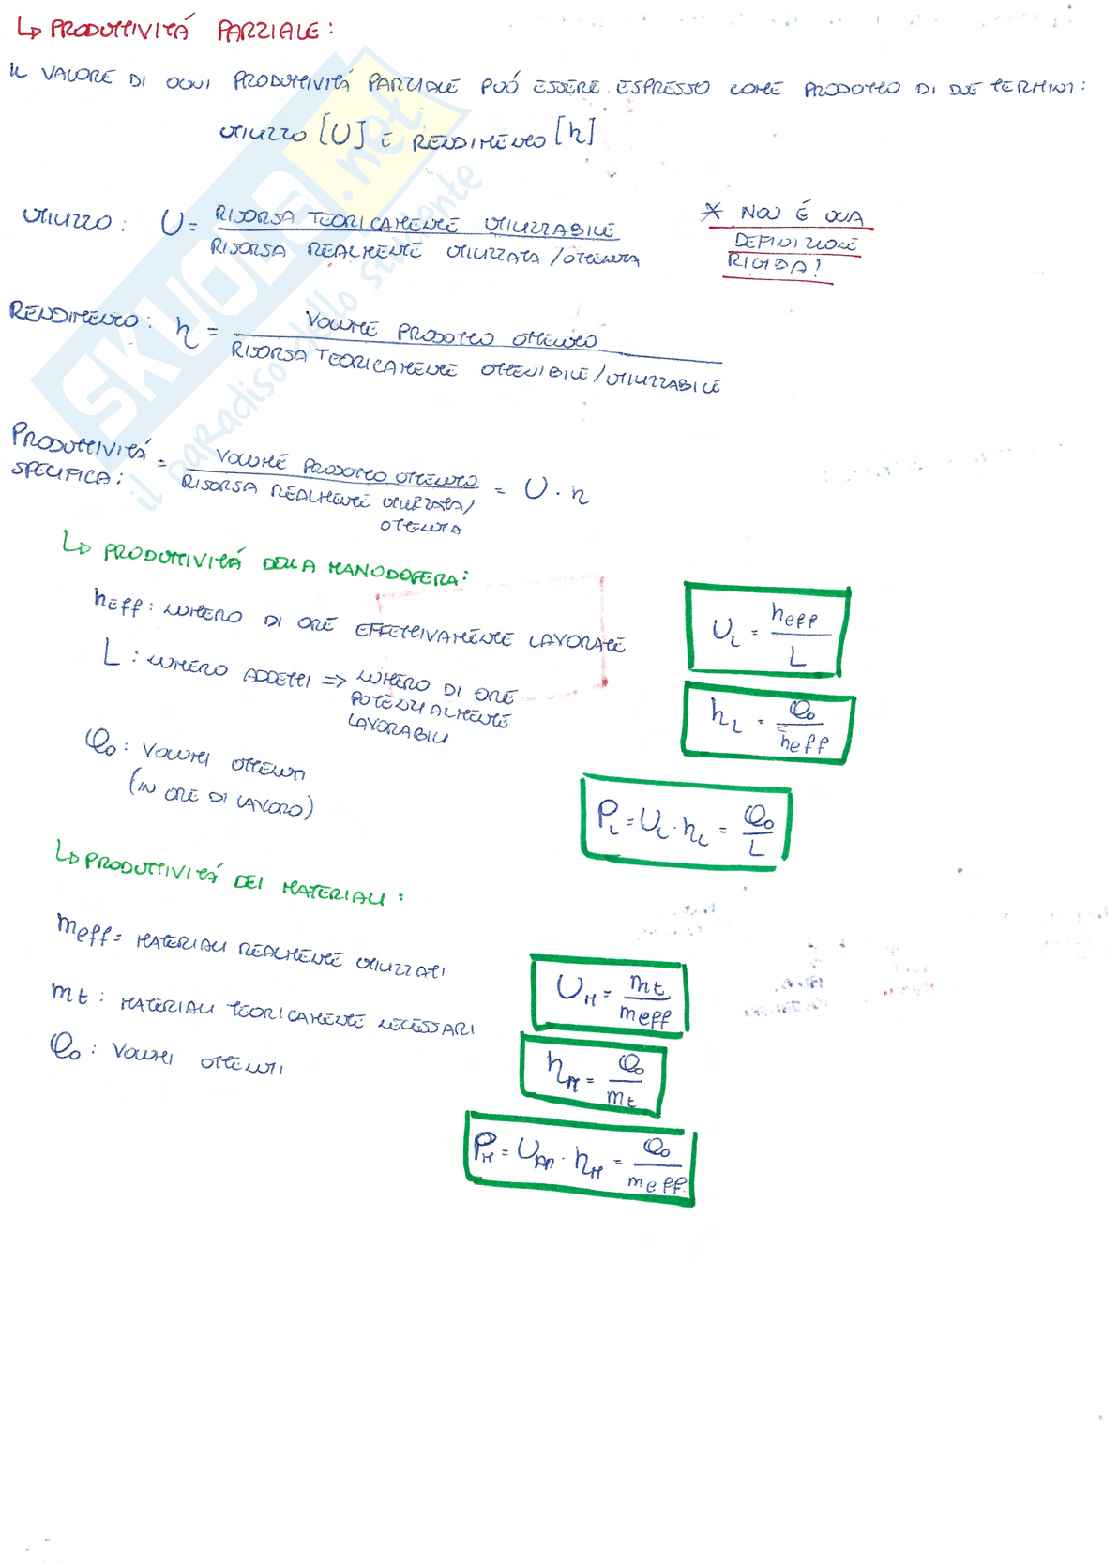 ↳ PRODUTTIVITÁ PARZIALE:
IL VALORE DI OGNI PRODUTTIVITÁ PARZIALE PUÓ ESSERE ESPRESSO COME PRODOTTO DI DUE TERMINI:
UTILIZZO [U] E RENDIMENTO [η]
UTILIZZO: U = RISORSA TEORICAMENTE UTILIZZABILE / RISORSA REALMENTE UTILIZZATA/OTTENUTA
* NON É UNA
DEFINIZIONE
RIGIDA!
RENDIMENTO: η = VOLUME PRODOTTO OTTENUTO / RISORSA TEORICAMENTE OTTENIBILE/UTILIZZABILE
PRODUTTIVITÁ SPECIFICA: = VOLUME PRODOTTO OTTENUTO / RISORSA REALMENTE UTILIZZATA/OTTENUTA = U · η
↳ PRODUTTIVITÁ DELLA MANODOPERA:
heff: NUMERO DI ORE EFFETTIVAMENTE LAVORATE
L: NUMERO ADDETTI => NUMERO DI ORE
POTENZIALMENTE
LAVORABILI
Qo: VOLUMI OTTENUTI
(IN ORE DI LAVORO)
U_L = heff / L
η_L = Qo / heff
P_L = U_L · η_L = Qo / L
↳ PRODUTTIVITÁ DEI MATERIALI:
meff = MATERIALI REALMENTE UTILIZZATI
mt: MATERIALI TEORICAMENTE NECESSARI
Qo: VOLUMI OTTENUTI
U_M = mt / meff
η_M = Qo / mt
P_M = U_M · η_M = Qo / meff
SKUOLA.net
il paradiso dello studente